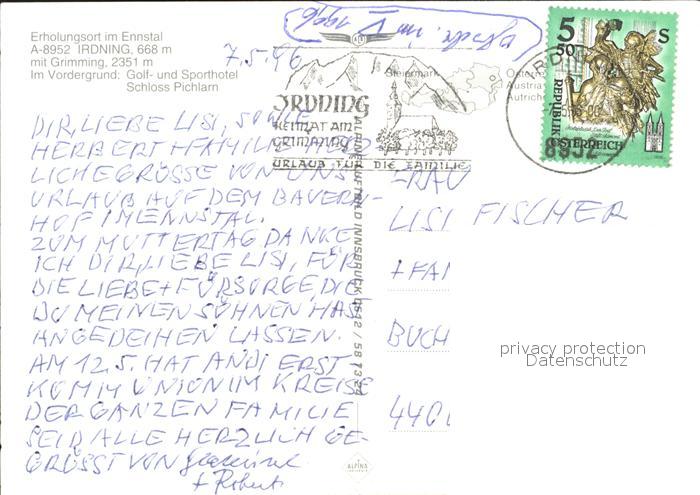 Erholungsort im Ennstal
A-8952 IRDNING, 668 m
mit Grimming, 2351 m
Im Vordergrund: Golf- und Sporthotel
Schloss Pichlarn
7.5.96
ALPI
Steiermark
IRDNING
HEIMAT AM
GRIMMING
URLAUB FÜR DIE FAMILIE
5 50 S
REPUBLIK
ÖSTERREICH
8952
DIR, LIEBE LISI, SOWIE
HERBERT + FAMILIE
LICHE GRÜSSE VON UNS
URLAUB AUF DEM BAUERN-
HOF IM ENNSTAL.
ZUM MUTTERTAG DANKE
ICH DIR, LIEBE LISI, FÜR
DIE LIEBE + FÜRSORGE DIE
DU MEINEN SÖHNEN HAST
ANGEDEIHEN LASSEN.
AM 12.5. HAT ANDI ERST
KOMMUNION IM KREISE
DER GANZEN FAMILIE
SEID ALLE HERZLICH GE-
GRÜSST VON
+ Robert
ALPINE LUFTBILD INNSBRUCK 0512 / 58 13 24
ALPINA
FRAU
LISI FISCHER
+ FA
BUCH
440
privacy protection
Datenschutz